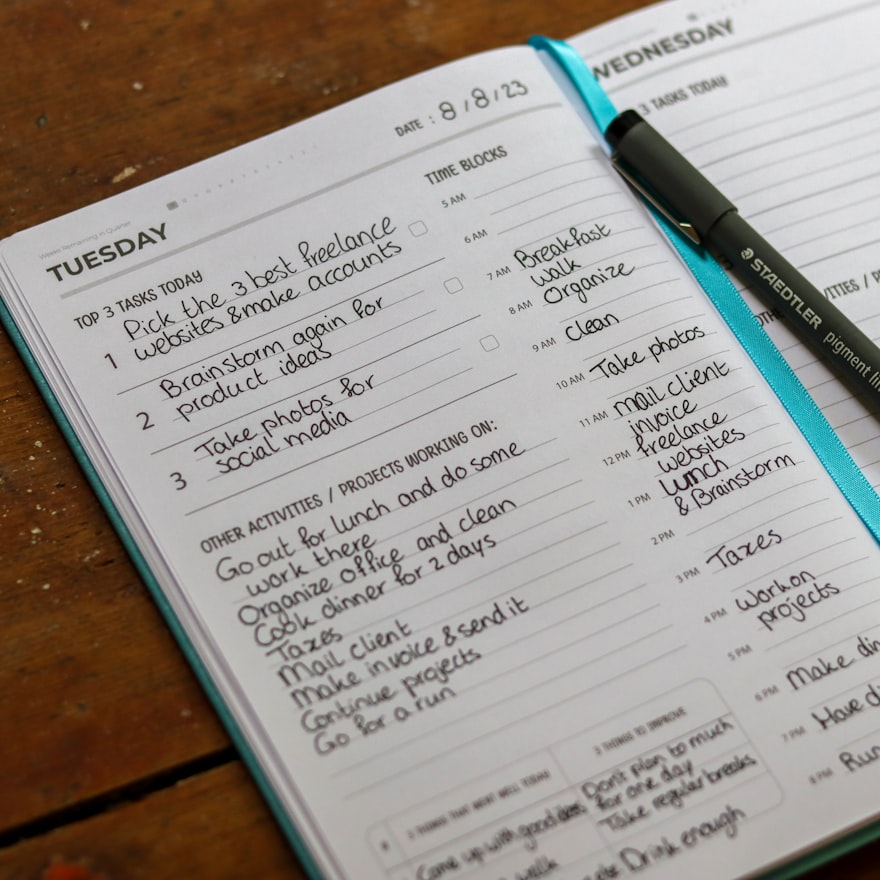 Weeks Remaining in Quarter
TUESDAY
DATE : 8/8/23
TOP 3 TASKS TODAY
1 Pick the 3 best freelance
websites & make accounts
2 Brainstorm again for
product ideas
3 Take photos for
social media
OTHER ACTIVITIES / PROJECTS WORKING ON:
Go out for lunch and do some
work there
Organize office and clean
Cook dinner for 2 days
Taxes
Mail client
Make invoice & send it
Continue projects
Go for a run
3 THINGS THAT WENT WELL TODAY
Came up with good ideas
walk
3 THINGS TO IMPROVE
Don't plan to much
for one day
Take regular breaks
Drink enough
TIME BLOCKS
5 AM
6 AM
7 AM Breakfast
walk
8 AM Organize
9 AM Clean
10 AM Take photos
11 AM Mail client
invoice
freelance
12 PM websites
Lunch
1 PM & Brainstorm
2 PM
3 PM Taxes
4 PM Work on
projects
5 PM
6 PM Make din
7 PM Have di
8 PM Run
WEDNESDAY
3 TASKS TODAY
STAEDTLER
pigment lin